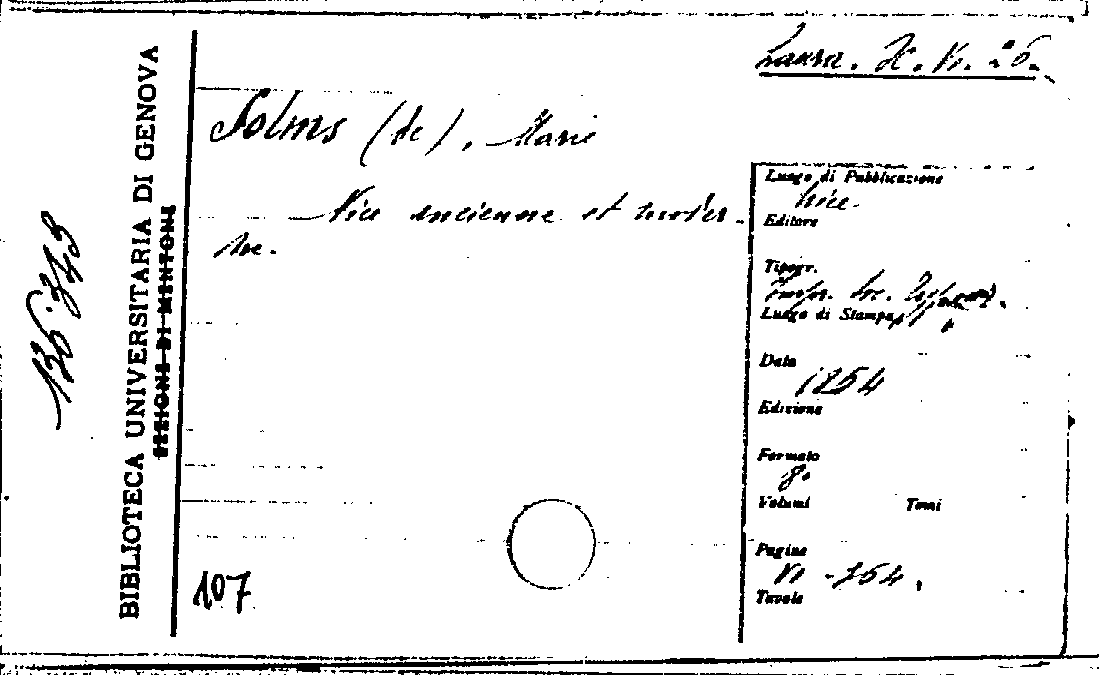 Laura. X. VI. 26.
Solms (de), Marie
Nice ancienne et moder-
ne.
Luogo di Pubblicazione
Nice.
Editore
Tipogr.
Luogo di Stampa
Data
1854
Edizione
Formato
8°
Volumi Tomi
Pagine
VI - 354.
Tavole
107
BIBLIOTECA UNIVERSITARIA DI GENOVA
SEZIONE DI MENTONE
136343